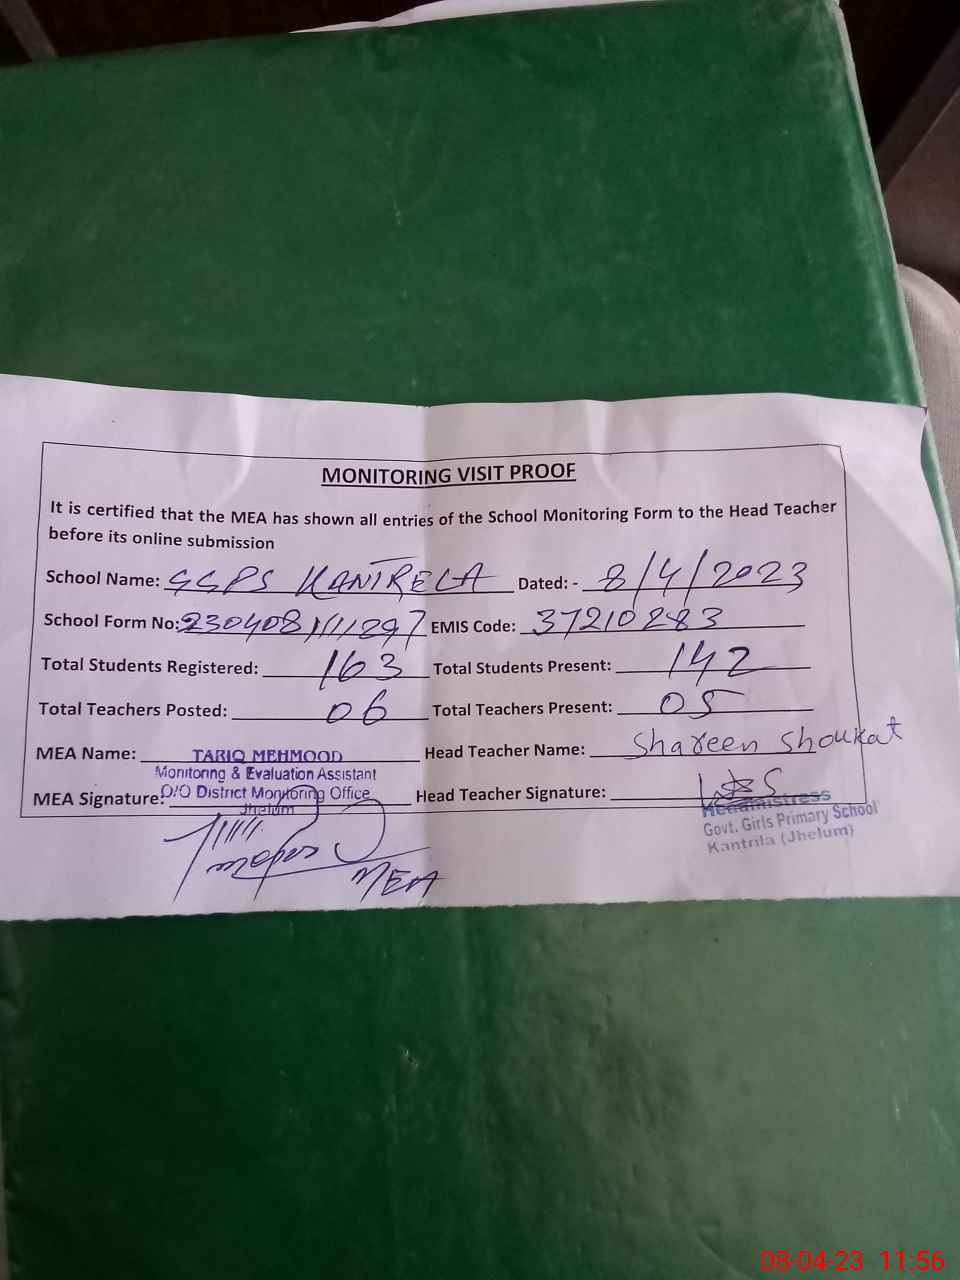 MONITORING VISIT PROOF
It is certified that the MEA has shown all entries of the School Monitoring Form to the Head Teacher
before its online submission
School Name: GGPS KANTRELA Dated: - 8/4/2023
School Form No: 230408111297 EMIS Code: 37210283
Total Students Registered: 163 Total Students Present: 142
Total Teachers Posted: 06 Total Teachers Present: 05
MEA Name: TARIQ MEHMOOD Head Teacher Name: Shareen Shoukat
Monitoring & Evaluation Assistant
MEA Signature: O/O District Monitoring Office Head Teacher Signature:
Jhelum
Headmistress
Govt. Girls Primary School
Kantrila (Jhelum)
MEA
08-04-23 11:56